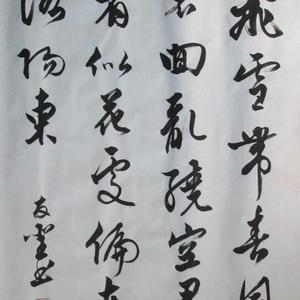 飛雪帶春風
裴回亂繞空君
看似花處偏在
洛陽東